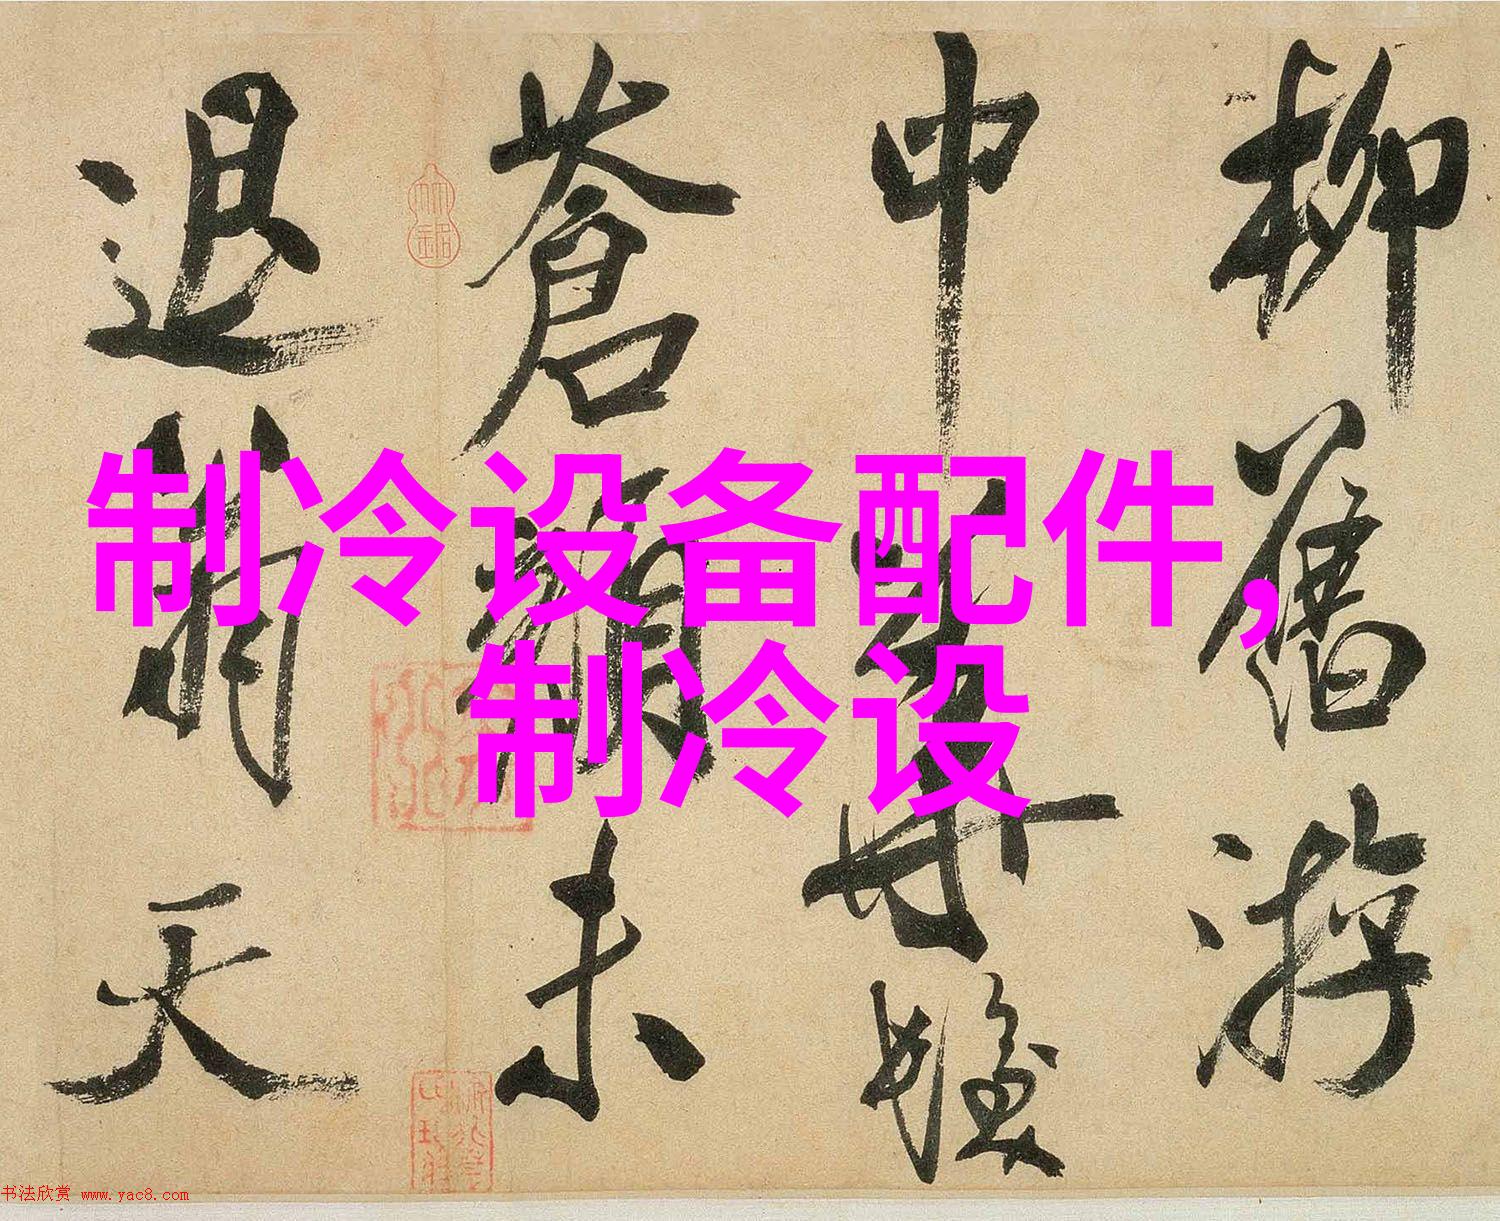 制冷设备配件,
制冷设
柳舊游
中
蒼顏未
退天
书法欣赏 www.yac8.com